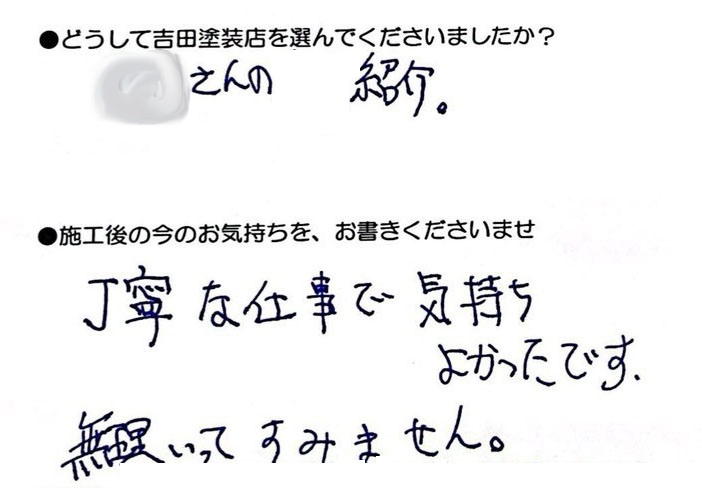 ●どうして吉田塗装店を選んでくださいましたか？
さんの 紹介。
●施工後の今のお気持ちを、お書きくださいませ
丁寧な仕事で気持ち
よかったです.
無理いってすみません。